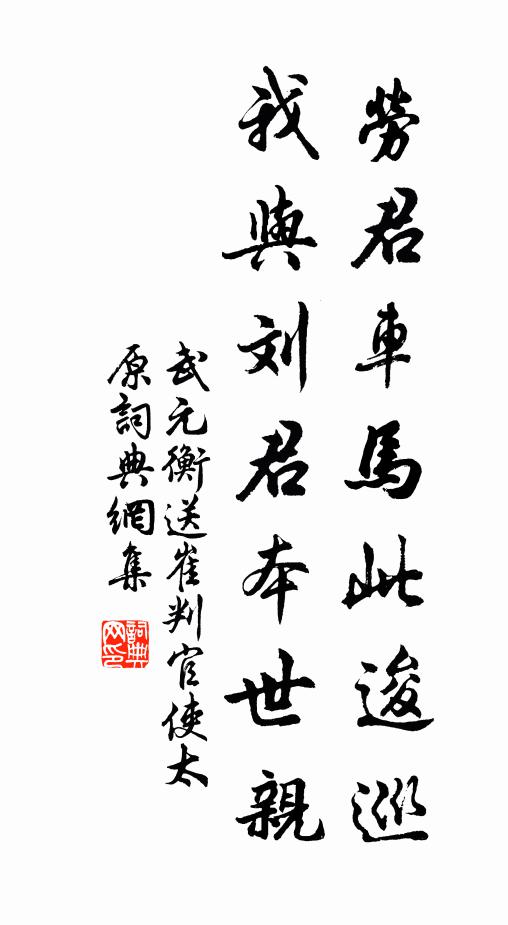 勞君車馬此逡巡
我與刘君本世親
武元衡送崔判官使太
原詞典網集
詞典网印